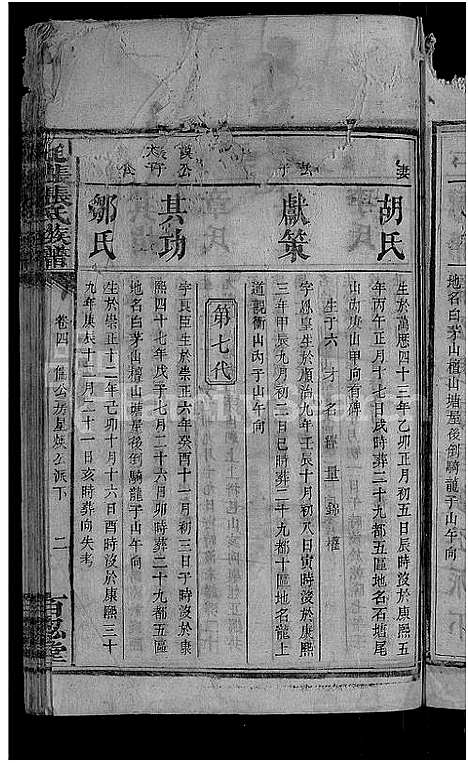 胡氏
生於萬歷四十三年乙卯正月初五日辰時沒於康熙五
年丙午正月十七日戌時葬二十九都五區地名石塘尾
山丙山甲向有碑
生子六 才 名 積 量 錦 權
獻策
字
三年甲辰九月初三日巳時葬二十九都十區地名龍上
道觀衡山丙子山午向
第七代
其功
字良臣生於崇正六年癸酉十一月初三日子時沒於康
熙四十七年戊子七月二十六日卯時葬二十九都五區
地名白茅山檀山塘屋後倒騎龍子山午向
鄒氏
生於崇正十二年己卯十月十六日酉時沒於康熙三十
九年庚辰十二月二十一日亥時葬向失考
張氏族譜
卷四
公派下
二
百忍堂
地名白茅山檀山塘屋後倒騎龍子山午向